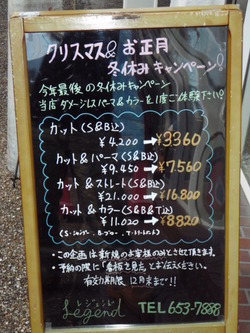 クリスマス& お正月
冬休みキャンペーン!
今年最後の冬休みキャンペーン
当店ダメージレスパーマ&カラーを1度ご体験下さい!
カット(S&B込)
¥4.200→¥3360
カット&パーマ(S&B込)
¥9.450→¥7.560
カット&ストレート(S&B込)
¥21.000→¥16.800
カット&カラー(S&B&T込)
¥11.020→¥8820
(S:シャンプー B:ブロー T:トリートメント)
・この企画は新規のお客様のみとさせて頂きます。
・予約の際に「看板を見た」とお伝えください。
有効期限 12月末まで!!
レジェンド
Legend TEL 653-7888